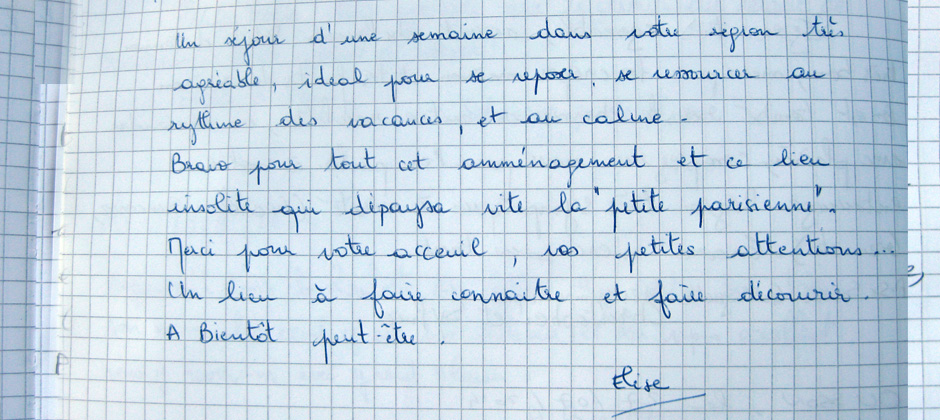 Un séjour d'une semaine dans votre région très
agréable, idéal pour se reposer, se ressourcer au
rythme des vacances, et au calme.
Bravo pour tout cet amménagement et ce lieu
insolite qui dépaysa vite la "petite parisienne".
Merci pour votre acceuil, vos petites attentions...
Un lieu à faire connaitre et faire découvrir.
A Bientôt peut-être.
Elise